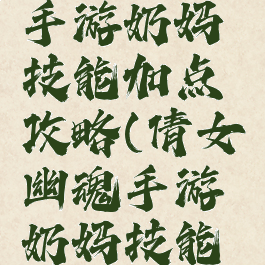 手游奶妈
技能加点
攻略(倩女
幽魂手游
奶妈技能